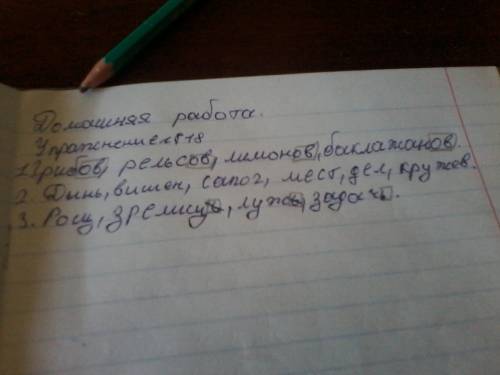 Домашняя работа.
Упражнение №518
1. Грибов, рельсов, лимонов, баклажанов.
2. Дынь, вишен, сапог, мест, дел, кружев.
3. Рощ, зрелищ, луж, задач.